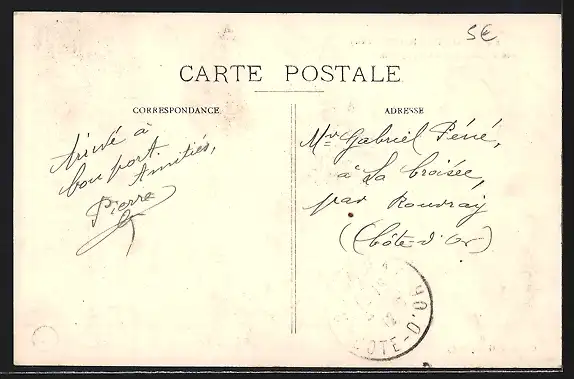 5€
CARTE POSTALE
CORRESPONDANCE
Arrivé à
bon port
Amitiés,
Pierre
ADRESSE
Mr Gabriel Péné,
à La Croisée,
par Rouvray
(Côte-d'Or)
CÔTE-D'OR